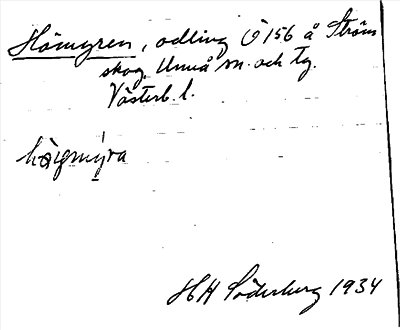 Hömyren, odling Ö 156 å Ström
skog, Umeå sn. och tg.
Västerb. l.
högmýra
HH Söderberg 1934